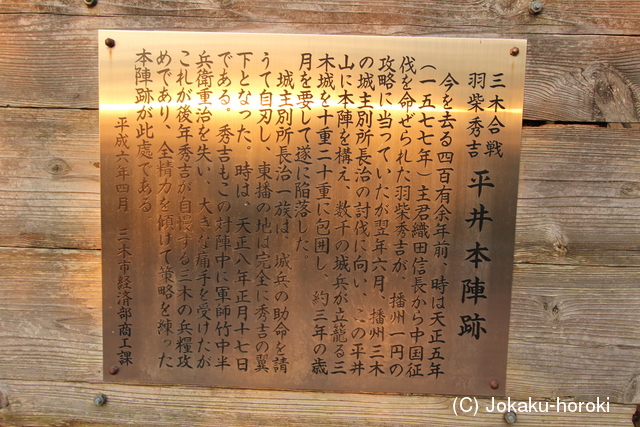 三木合戦
羽柴秀吉 平井本陣跡
今を去る四百有余年前、時は天正五年
(一五七七年)主君織田信長から中国征
伐を命ぜられた羽柴秀吉が、播州一円の
攻略に当っていたが翌年六月、播州三木
の城主別所長治の討伐に向い、この平井
山に本陣を構え、数千の城兵が立籠る三
木城を十重二十重に包囲し、約三年の歳
月を要して遂に陥落した。
城主別所長治一族は、城兵の助命を請
うて自刃し、東播の地は完全に秀吉の翼
下となった。時は、天正八年正月十七日
である。秀吉もこの対陣中に軍師竹中半
兵衛重治を失い、大きな痛手を受けたが
これが後年秀吉が自慢する三木の兵糧攻
めであり、全精力を傾けて策略を練った
本陣跡が此處である。
平成六年四月 三木市経済部商工課
(C) Jokaku-horoki